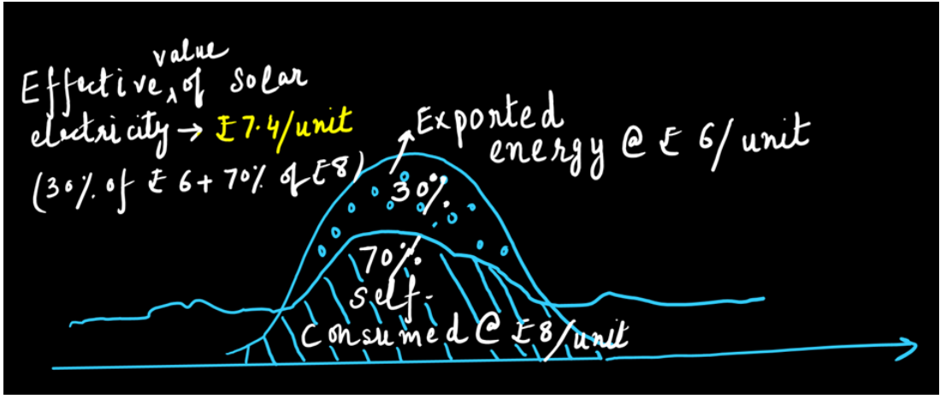 value
Effective of solar
electricity → ₹7.4/unit
(30% of ₹ 6 + 70% of ₹8)
Exported
energy @ ₹ 6/unit
30%
70%
self-
consumed @ ₹8/unit